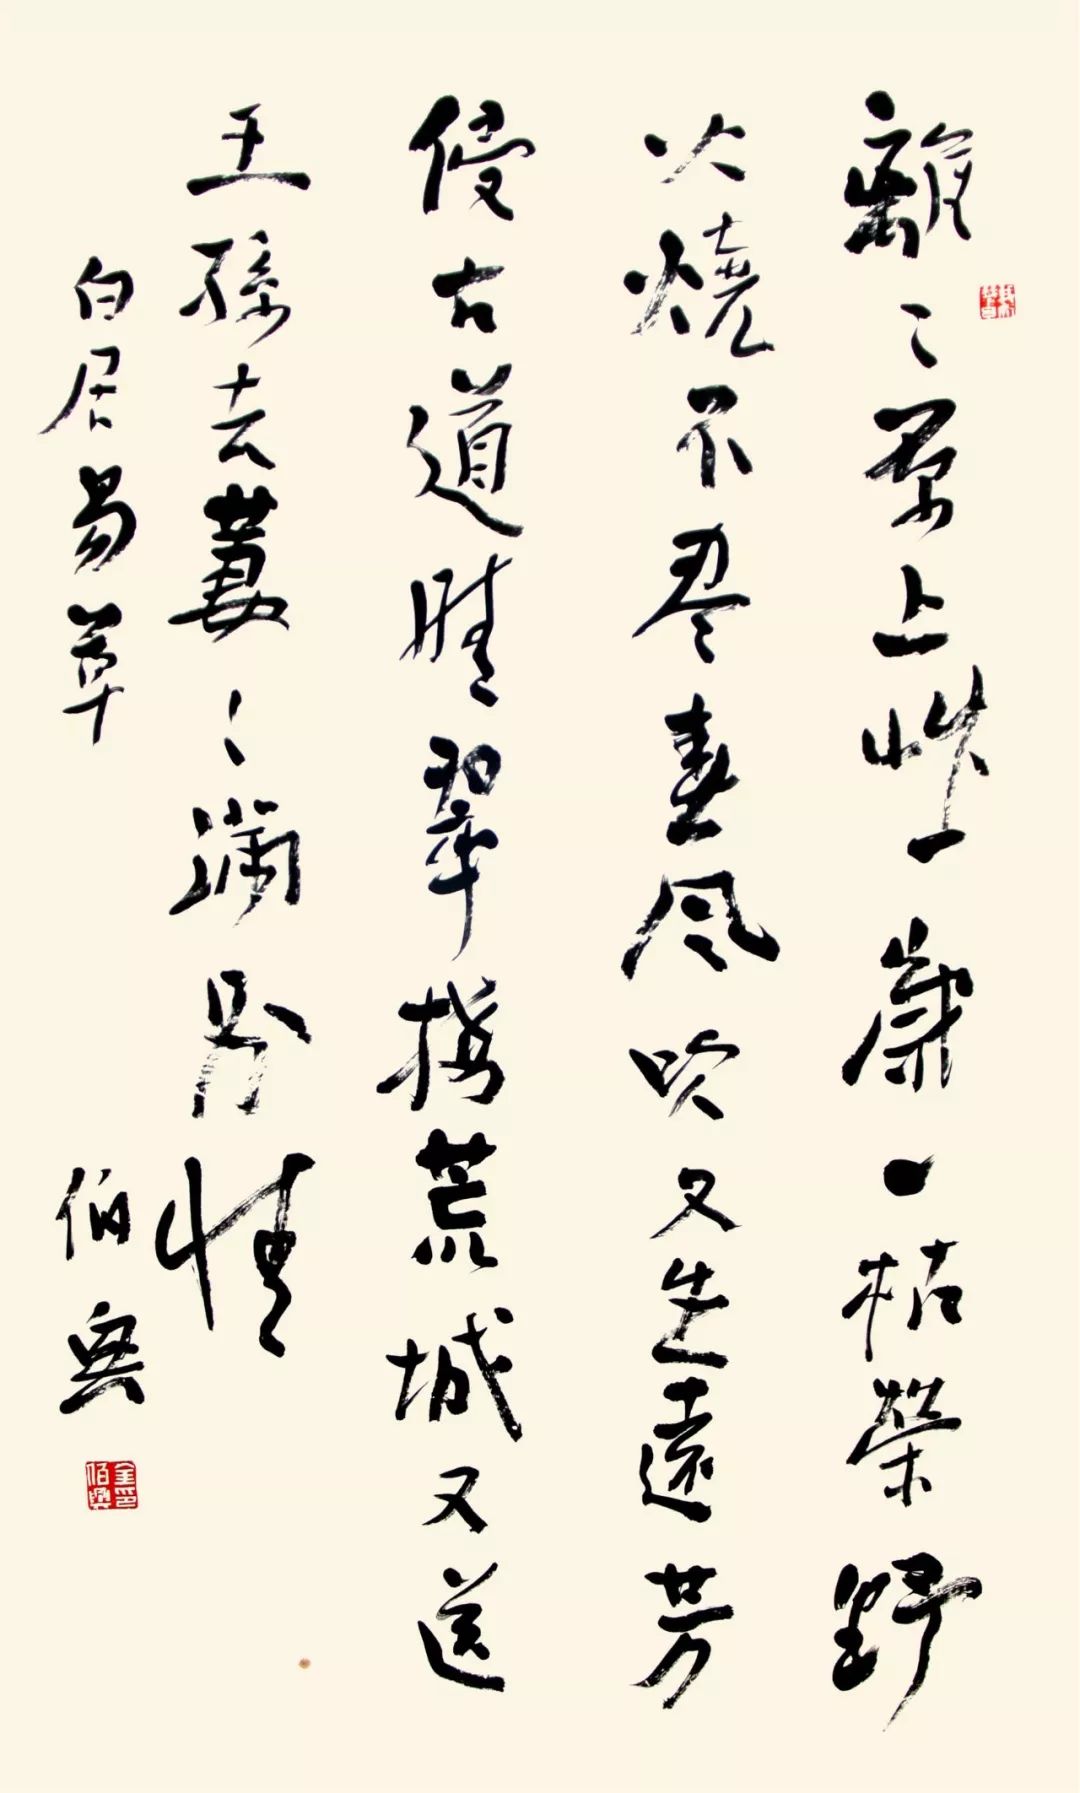 離〻原上艸一歲一枯榮野
火燒不盡春風吹又生遠芳
侵古道晴翠接荒城又送
王孫去萋〻滿別情
白居易草
伯興
金伯興印